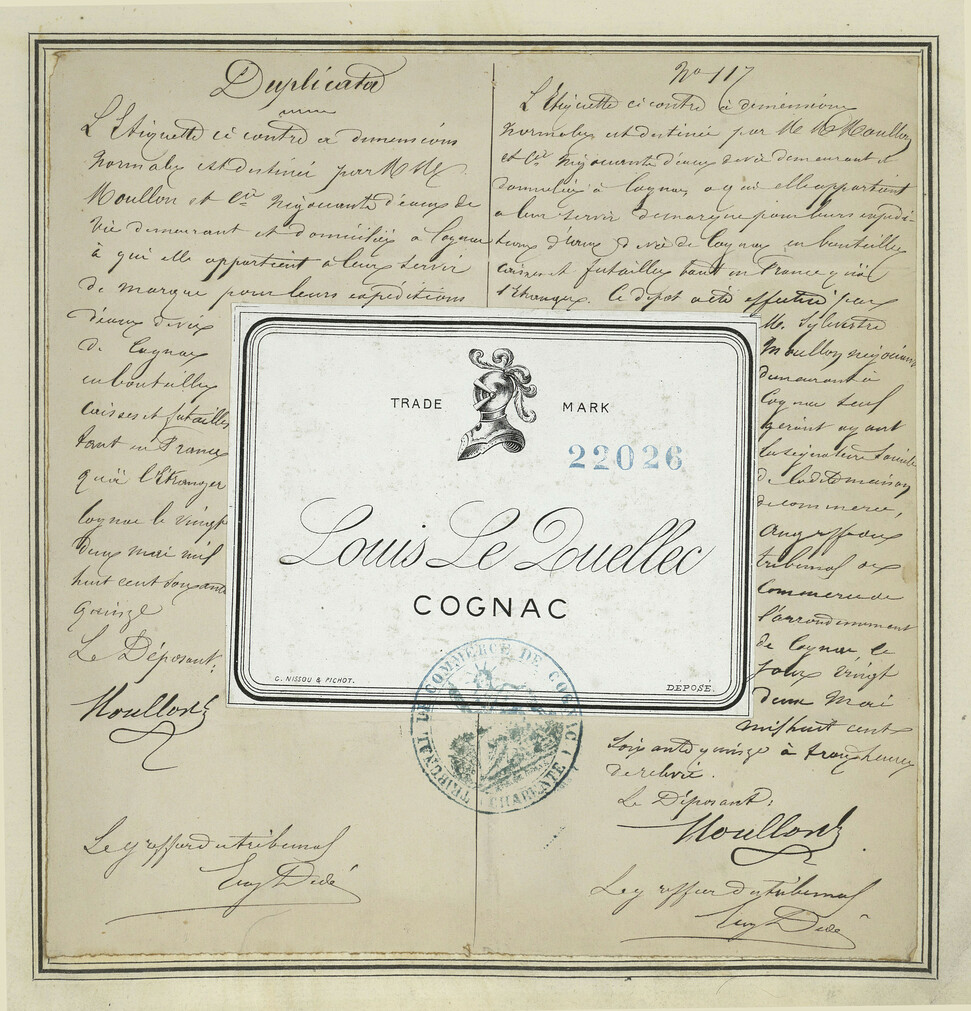 Duplicata
L'Etiquette ci contre à dimensions
normales est destinée par M M
Moullon et Cie négociants d'eaux de
vie demeurant et domiciliés à Cognac
à qui elle appartient à leur servir
de marque pour leurs expéditions
d'eaux de vie
de Cognac
en bouteilles
caisses et futailles
tant en France
qu'à l'Etranger
Cognac le vingt
deux mai mil
huit cent soixante
quinze
Le Déposant:
Moullon
Le greffier du tribunal
Eug Dedé
No 117
L'Etiquette ci contre à dimensions
normales est destinée par Mr Moullon
et Cie négociants d'eaux de vie demeurant et
domiciliés à Cognac, à qui elle appartient
à leur servir de marque pour leurs expédi-
tions d'eaux de vie de Cognac en bouteilles
caisses et futailles tant en France qu'à
l'Etranger. Ce dépôt a été effectué par
Mr. Sylvestre
Moullon négociant
demeurant à
Cognac seul
gérant ayant
la signature sociale
de la dite maison
de commerce,
au greffe du
tribunal de
commerce de
l'arrondissement
de Cognac, le
jour vingt
deux Mai
mil huit cent
soixante quinze à trois heures
de relevée.
Le Déposant:
Moullon
Le greffier du tribunal
Eug Dedé
TRADE MARK
22026
Louis Le Quellec
COGNAC
C. NISSOU & PICHOT.
DÉPOSÉ.
TRIBUNAL DE COMMERCE DE COGNAC (CHARENTE)